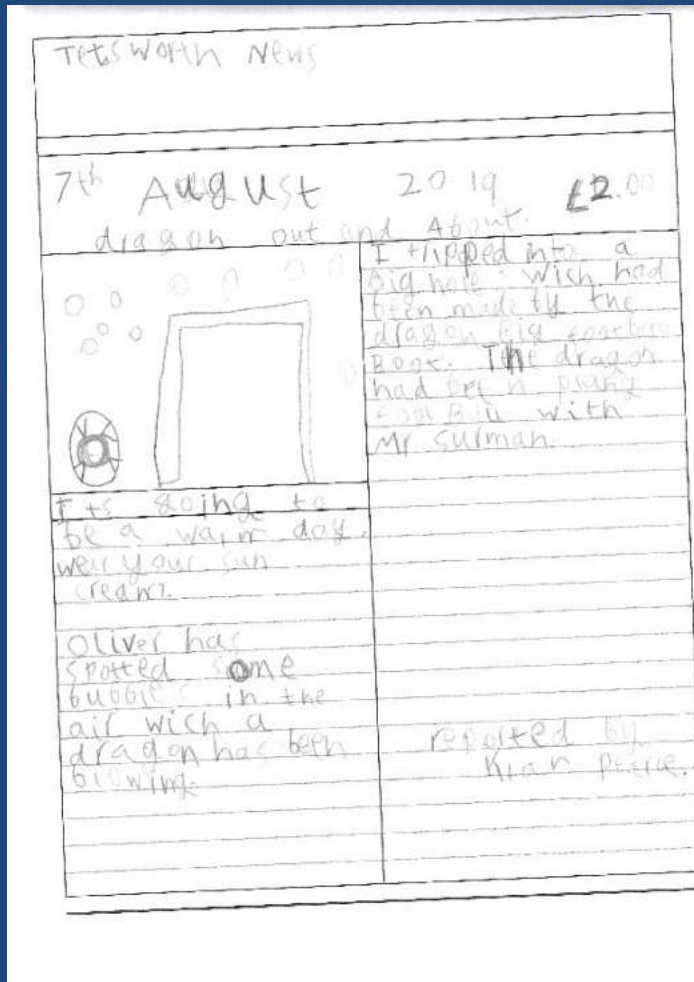 Tetsworth News
7th August 2019 £2.00
dragon out and About.
Its going to
be a warm day.
wear your sun
cream.
Oliver has
spotted some
bubbles in the
air wich a
dragon has been
blowing
I tripped into a
big hole. wich had
been made by the
dragon big football
Boot. The dragon
had been
football with
Mr Surman.
reported by
Kian Pearce.